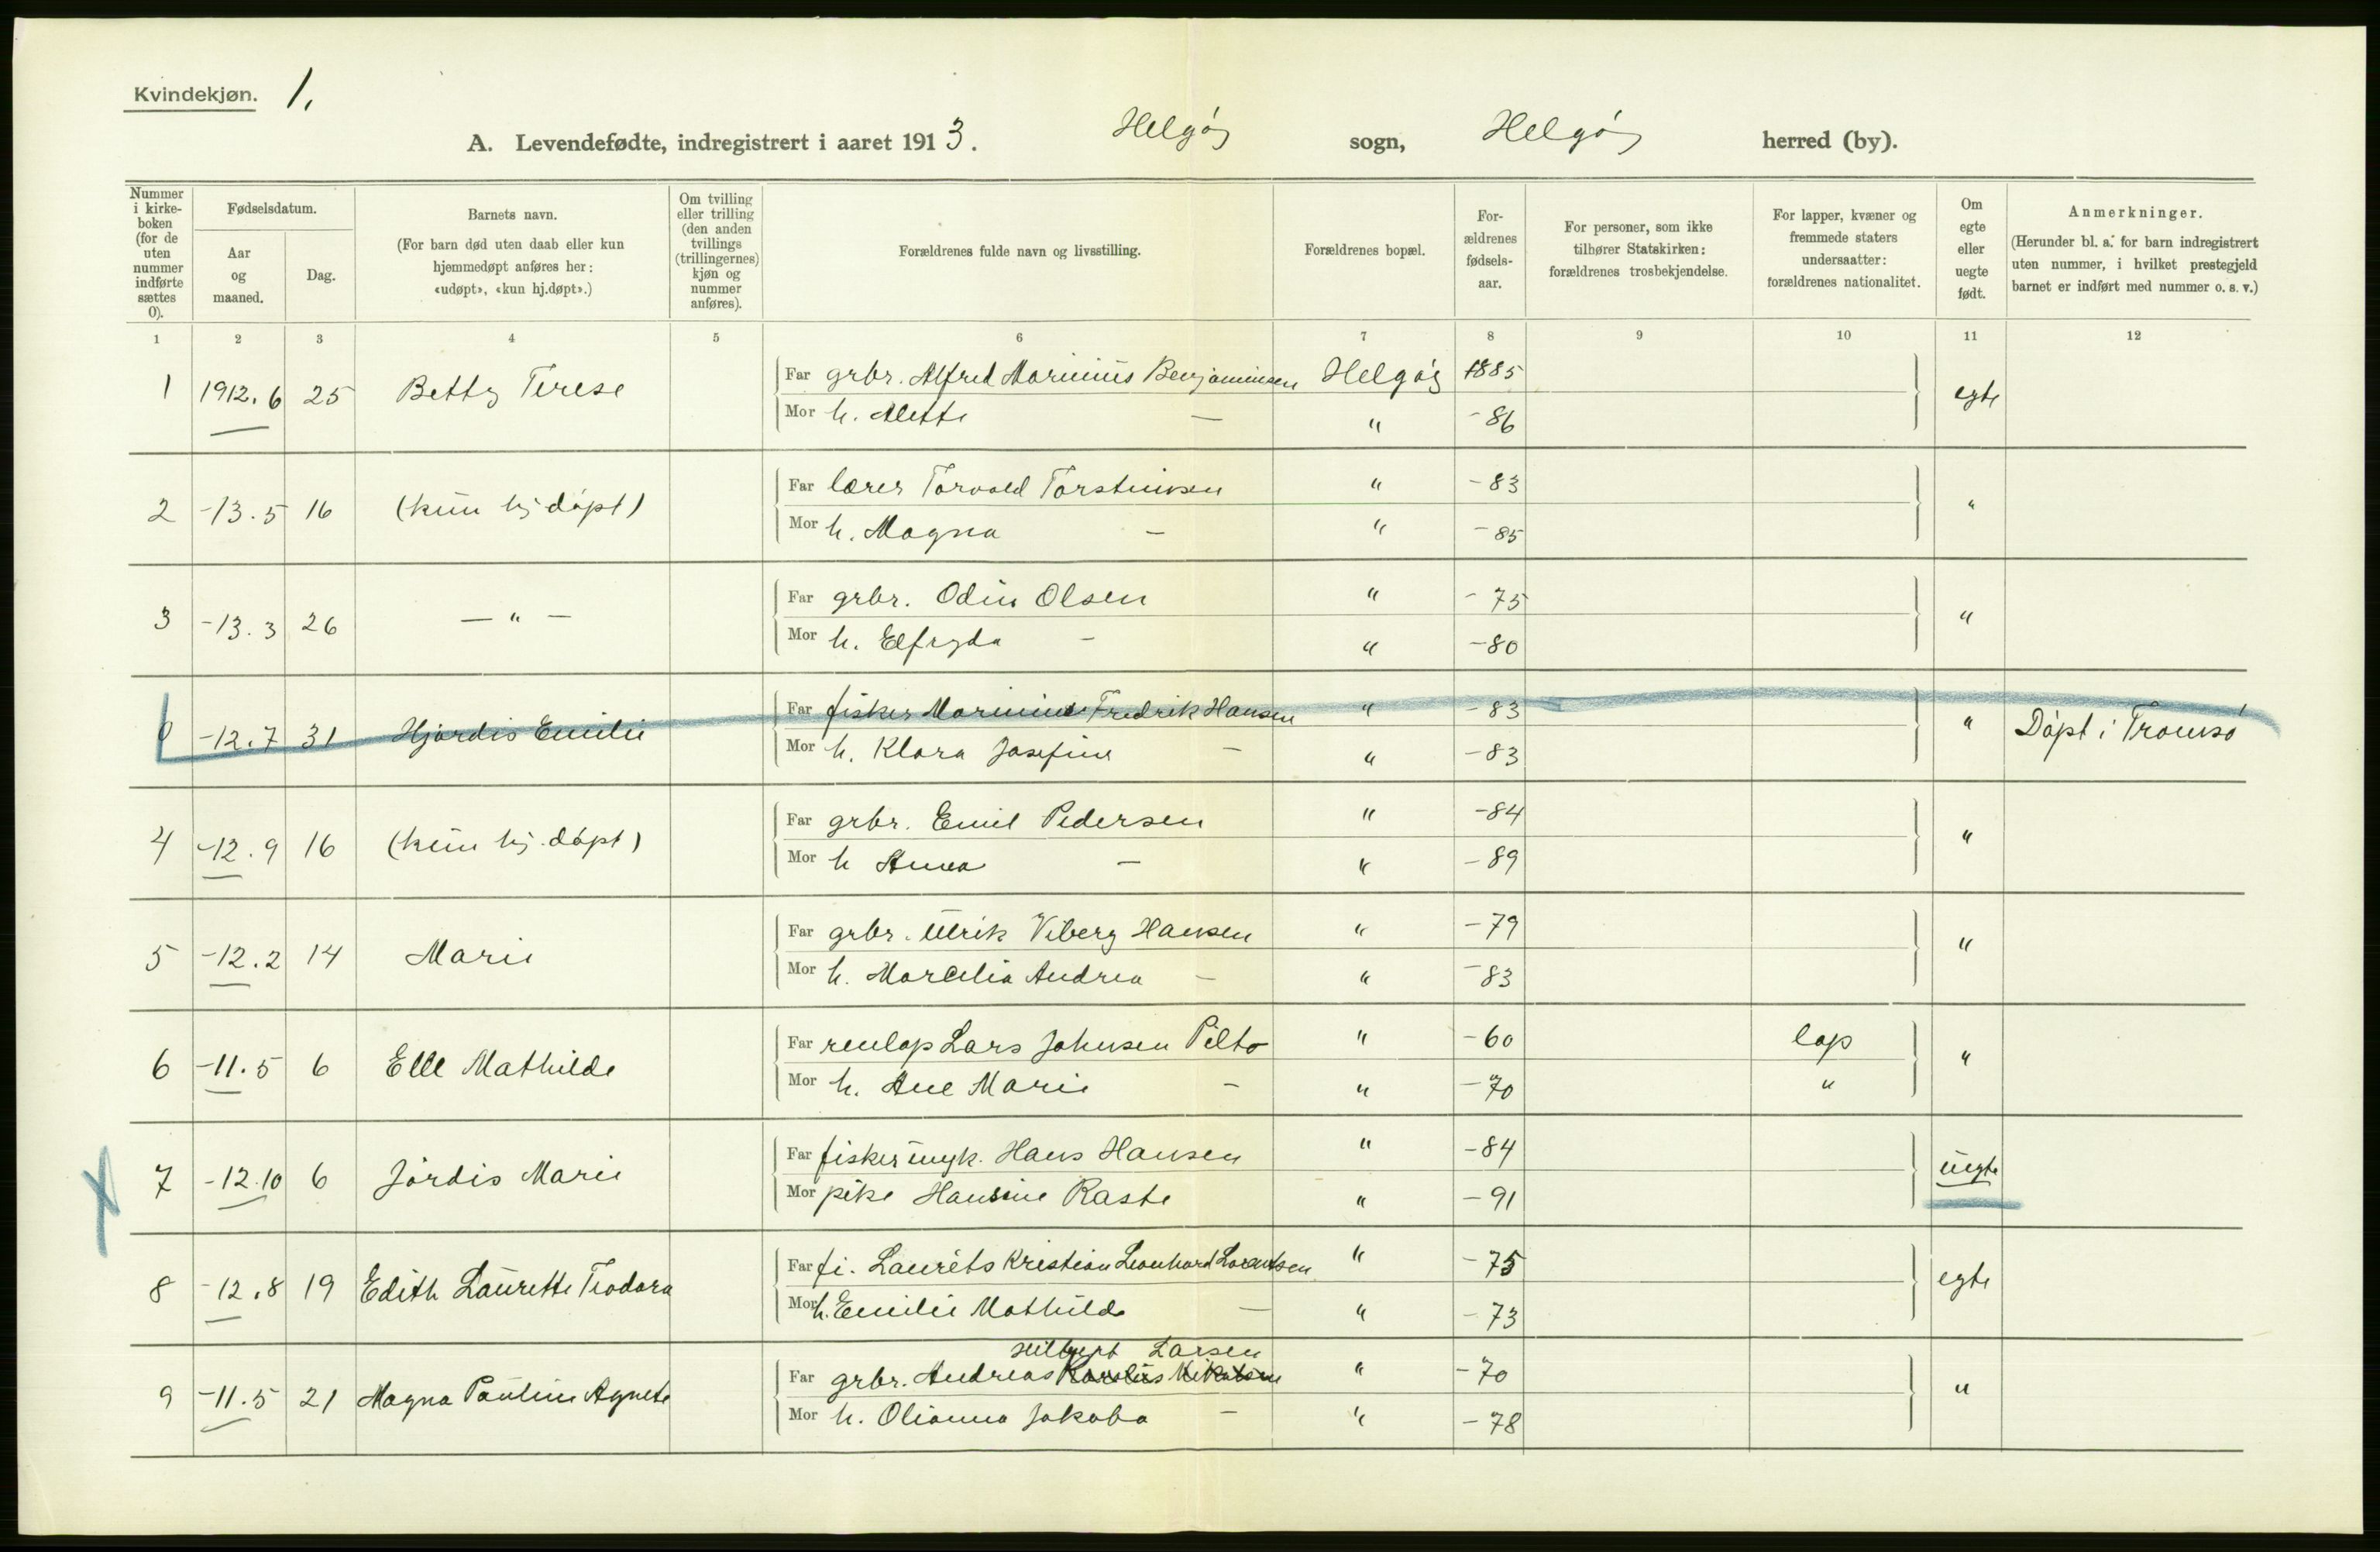 Kvindekjøn. 1.
A. Levendefødte, indregistrert i aaret 1913. Helgøy sogn, Helgøy herred (by).
Nummer i kirke-boken (for de uten nummer indførte sættes 0).
Fødselsdatum.
Aar og maaned.
Dag.
Barnets navn.
(For barn død uten daab eller kun hjemmedøpt anføres her: «udøpt», «kun hj.døpt».)
Om tvilling eller trilling (den anden tvillings (trillingernes) kjøn og nummer anføres).
Forældrenes fulde navn og livsstilling.
Forældrenes bopæl.
For-ældrenes fødsels-aar.
For personer, som ikke tilhører Statskirken: forældrenes trosbekjendelse.
For lapper, kvæner og fremmede staters undersaatter: forældrenes nationalitet.
Om egte eller uegte født.
Anmerkninger.
(Herunder bl. a. for barn indregistrert uten nummer, i hvilket prestegjeld barnet er indført med nummer o. s. v.)
1 2 3 4 5 6 7 8 9 10 11 12
1 1912.6 25 Betty Terese Far grbr. Alfred Marinius Benjaminsen Helgøy 1885 egte
Mor h. Alette — " -86
2 -13.5 16 (kun hj døpt) Far lærer Torvald Torsteinsen " -83 "
Mor h. Magna — " -85
3 -13.3 26 — " — Far grbr. Odin Olsen " -75 "
Mor h. Elfryda — " -80
0 -12.7 31 Hjørdis Emilie Far fisker Marinius Fredrik Hansen " -83 " Døpt i Tromsø
Mor h. Klara Josefine — " -83
4 -12.9 16 (kun hj. døpt) Far grbr. Emil Pedersen " -84 "
Mor h Anna — " -89
5 -12.2 14 Marie Far grbr. Ulrik Viberg Hansen " -79 "
Mor h. Marcelia Andrea — " -83
6 -11.5 6 Elle Mathilde Far renlap Lars Johnsen Pilto " -60 lap "
Mor h. Ane Marie — " -70 "
7 -12.10 6 Jørdis Marie Far fisker ungk. Hans Hansen " -84 uegte
Mor pike Hansine Raste " -91
8 -12.8 19 Edith Laurette Teodora Far fi. Laurits Kristian Leonhard Lorentsen " -75 egte
Mor h. Emilie Mathilde — " -73
Larsen
9 -11.5 21 Magna Pauline Agnete Far grbr. Andreas Karolius " -70 "
Mor h. Olianna Jakoba — " -78